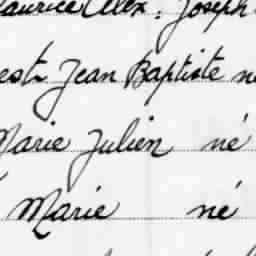 Maurice Alex. Joseph
est Jean Baptiste né
Marie Julien né
Marie né